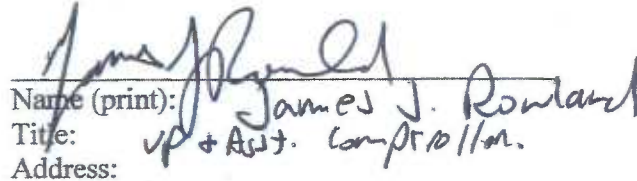 Name (print): James J. Rowland
Title: VP + Asst. Comptroller.
Address: